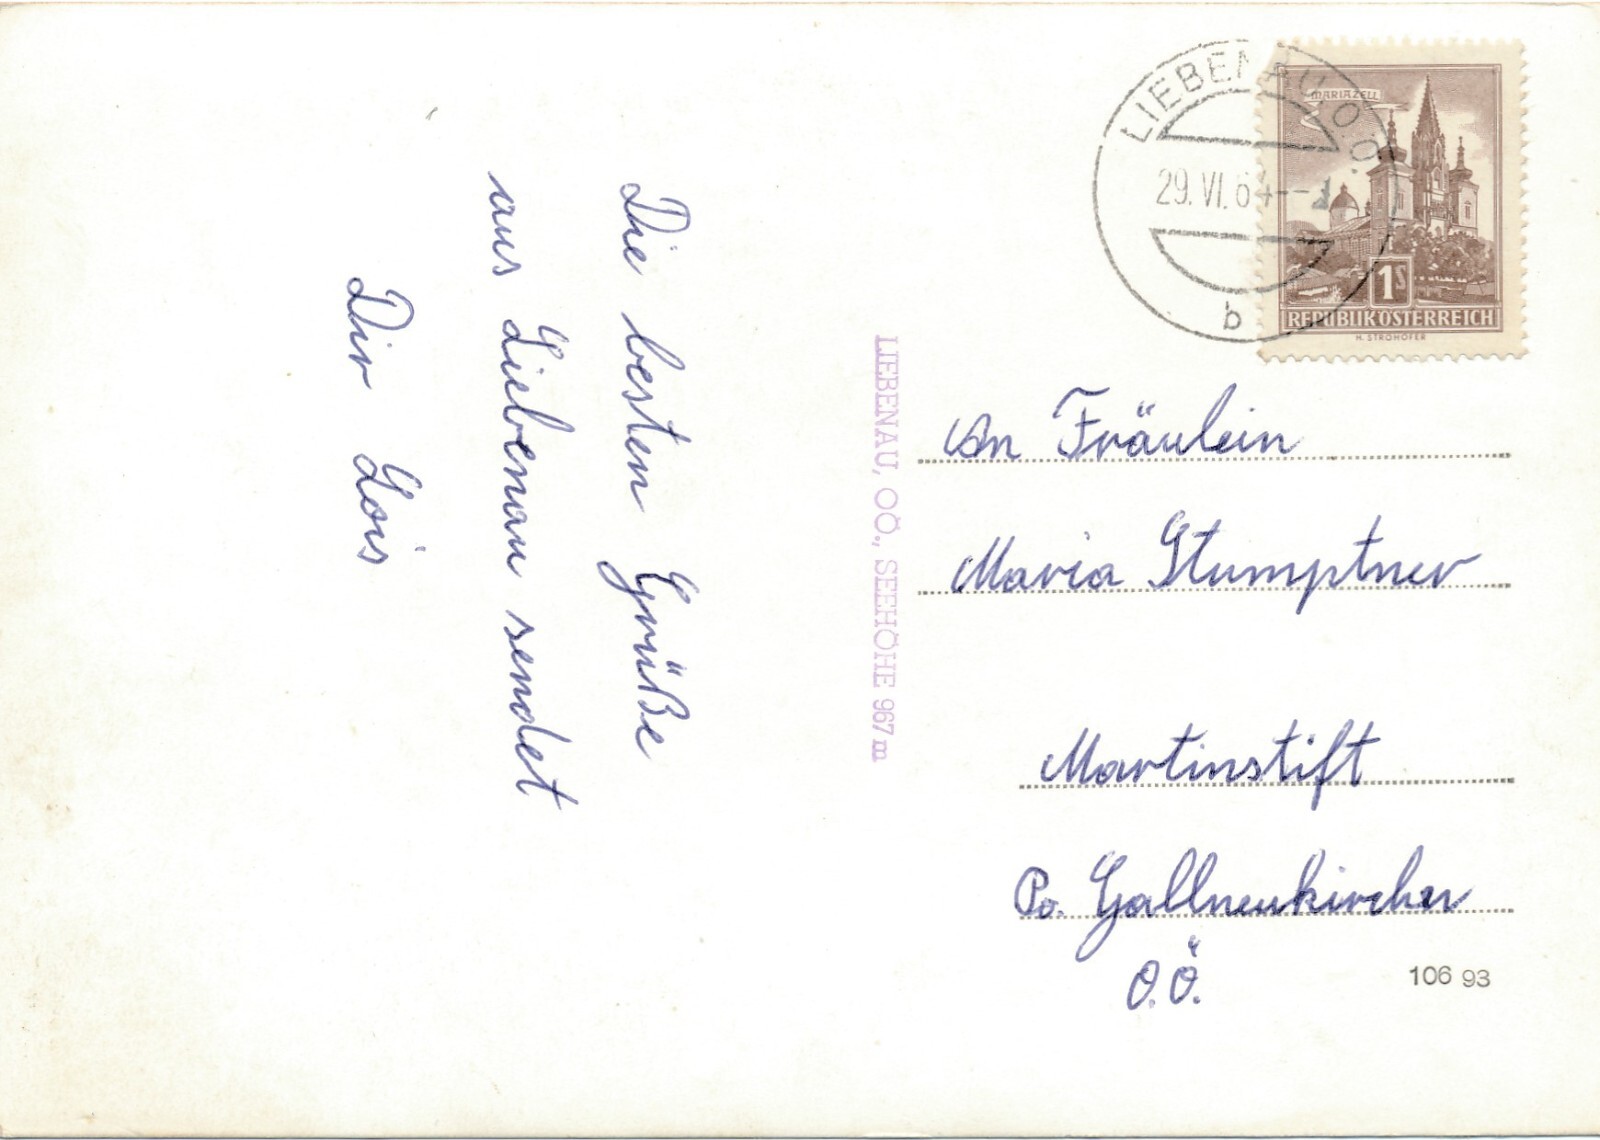 Die besten Grüße
aus Liebenau sendet
Dir Lois
LIEBENAU, OÖ., SEEHÖHE 967 m
LIEBENAU, O.Ö.
29. VI. 64--
b
MARIAZELL
1S
REPUBLIK ÖSTERREICH
H. STROHOFER
An Fräulein
Maria Stumptner
Martinstift
Po. Gallneukirchen
O.Ö.
106 93